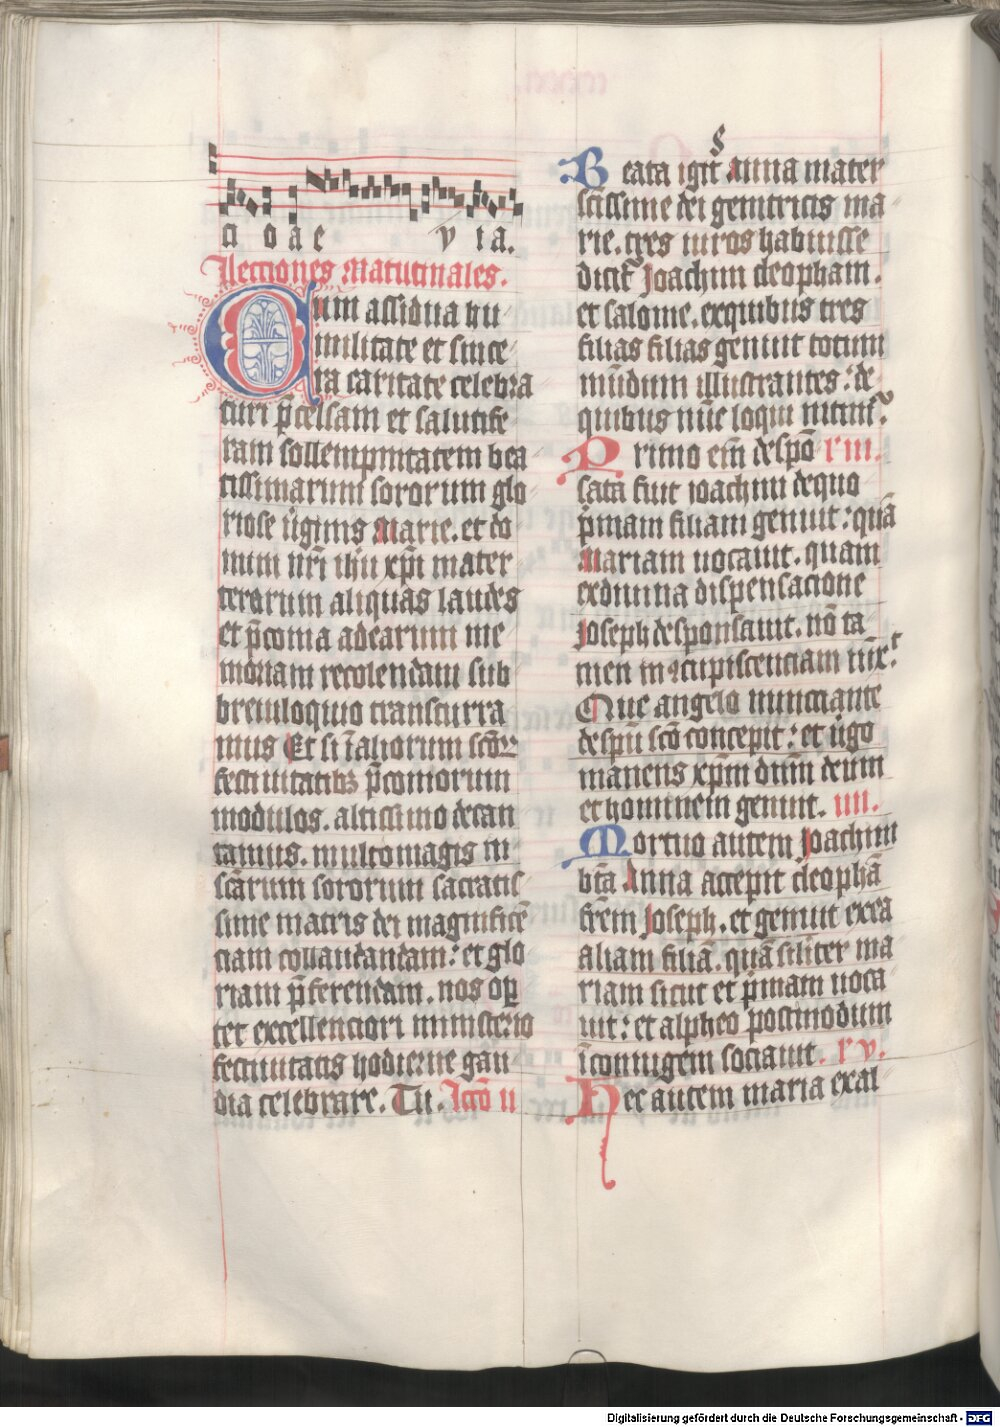 a o a e v ia.
Lectiones matutinales.
Cum assidua hu
militate et since
ra caritate celebra
turi p̄celsam et salutife
ram sollempnitatem bea
tissimarum sororum glo
riose v̄ginis Marie. et do
mini nr̄i ihū xp̄i mater
terarum aliquas laudes
et p̄conia ad earum me
moriam recolendam sub
breuiloquio transcurra
mus Et si ī aliorum scōꝝ
festiuitatibꝫ p̄coniorum
modulos. altissimo decan
tamus. multo magis in
scāꝛum sororum sacratis
sime matris dei magnificē
ciam collaudandam: et glo
riam p̄ferendam. nos opꝑ
tet excellenciori ministerio
festiuitatis hodierne gau
dia celebrare. Tu. Lcc̄o ii
s
Beata igit̄ Anna mater
sctissime dei genitricis ma
rie. tres uiros habuisse
dicit̄ Joachim cleopham.
et salome. ex quibus tres
filias filias genuit totum
mūdum illustrantes: de
quibus nūc loqui nitim᷒.
Primo em̄ despō l'iii.
sata fuit ioachim de quo
p̄mam filiam genuit: quā
Mariam uocauit. quam
ex diuina dispensacione
Joseph desponsauit. nō ta
men in ꝯcupiscenciam iūx.t
Que angelo nunciante
de spū scō concepit: et v̄go
manens xp̄m dn̄m deum
et hominem genuit. iiii.
Mortuo autem Joachim
bt̄a Anna accepit cleophā
frēm Joseph. et genuit ex ea
aliam filiā. quā silīter ma
riam sicut et p̄mam uoca
uit: et alpheo postmodum
ī coniugem sociauit. l'v.
Hec autem maria exal
Digitalisierung gefördert durch die Deutsche Forschungsgemeinschaft - DFG